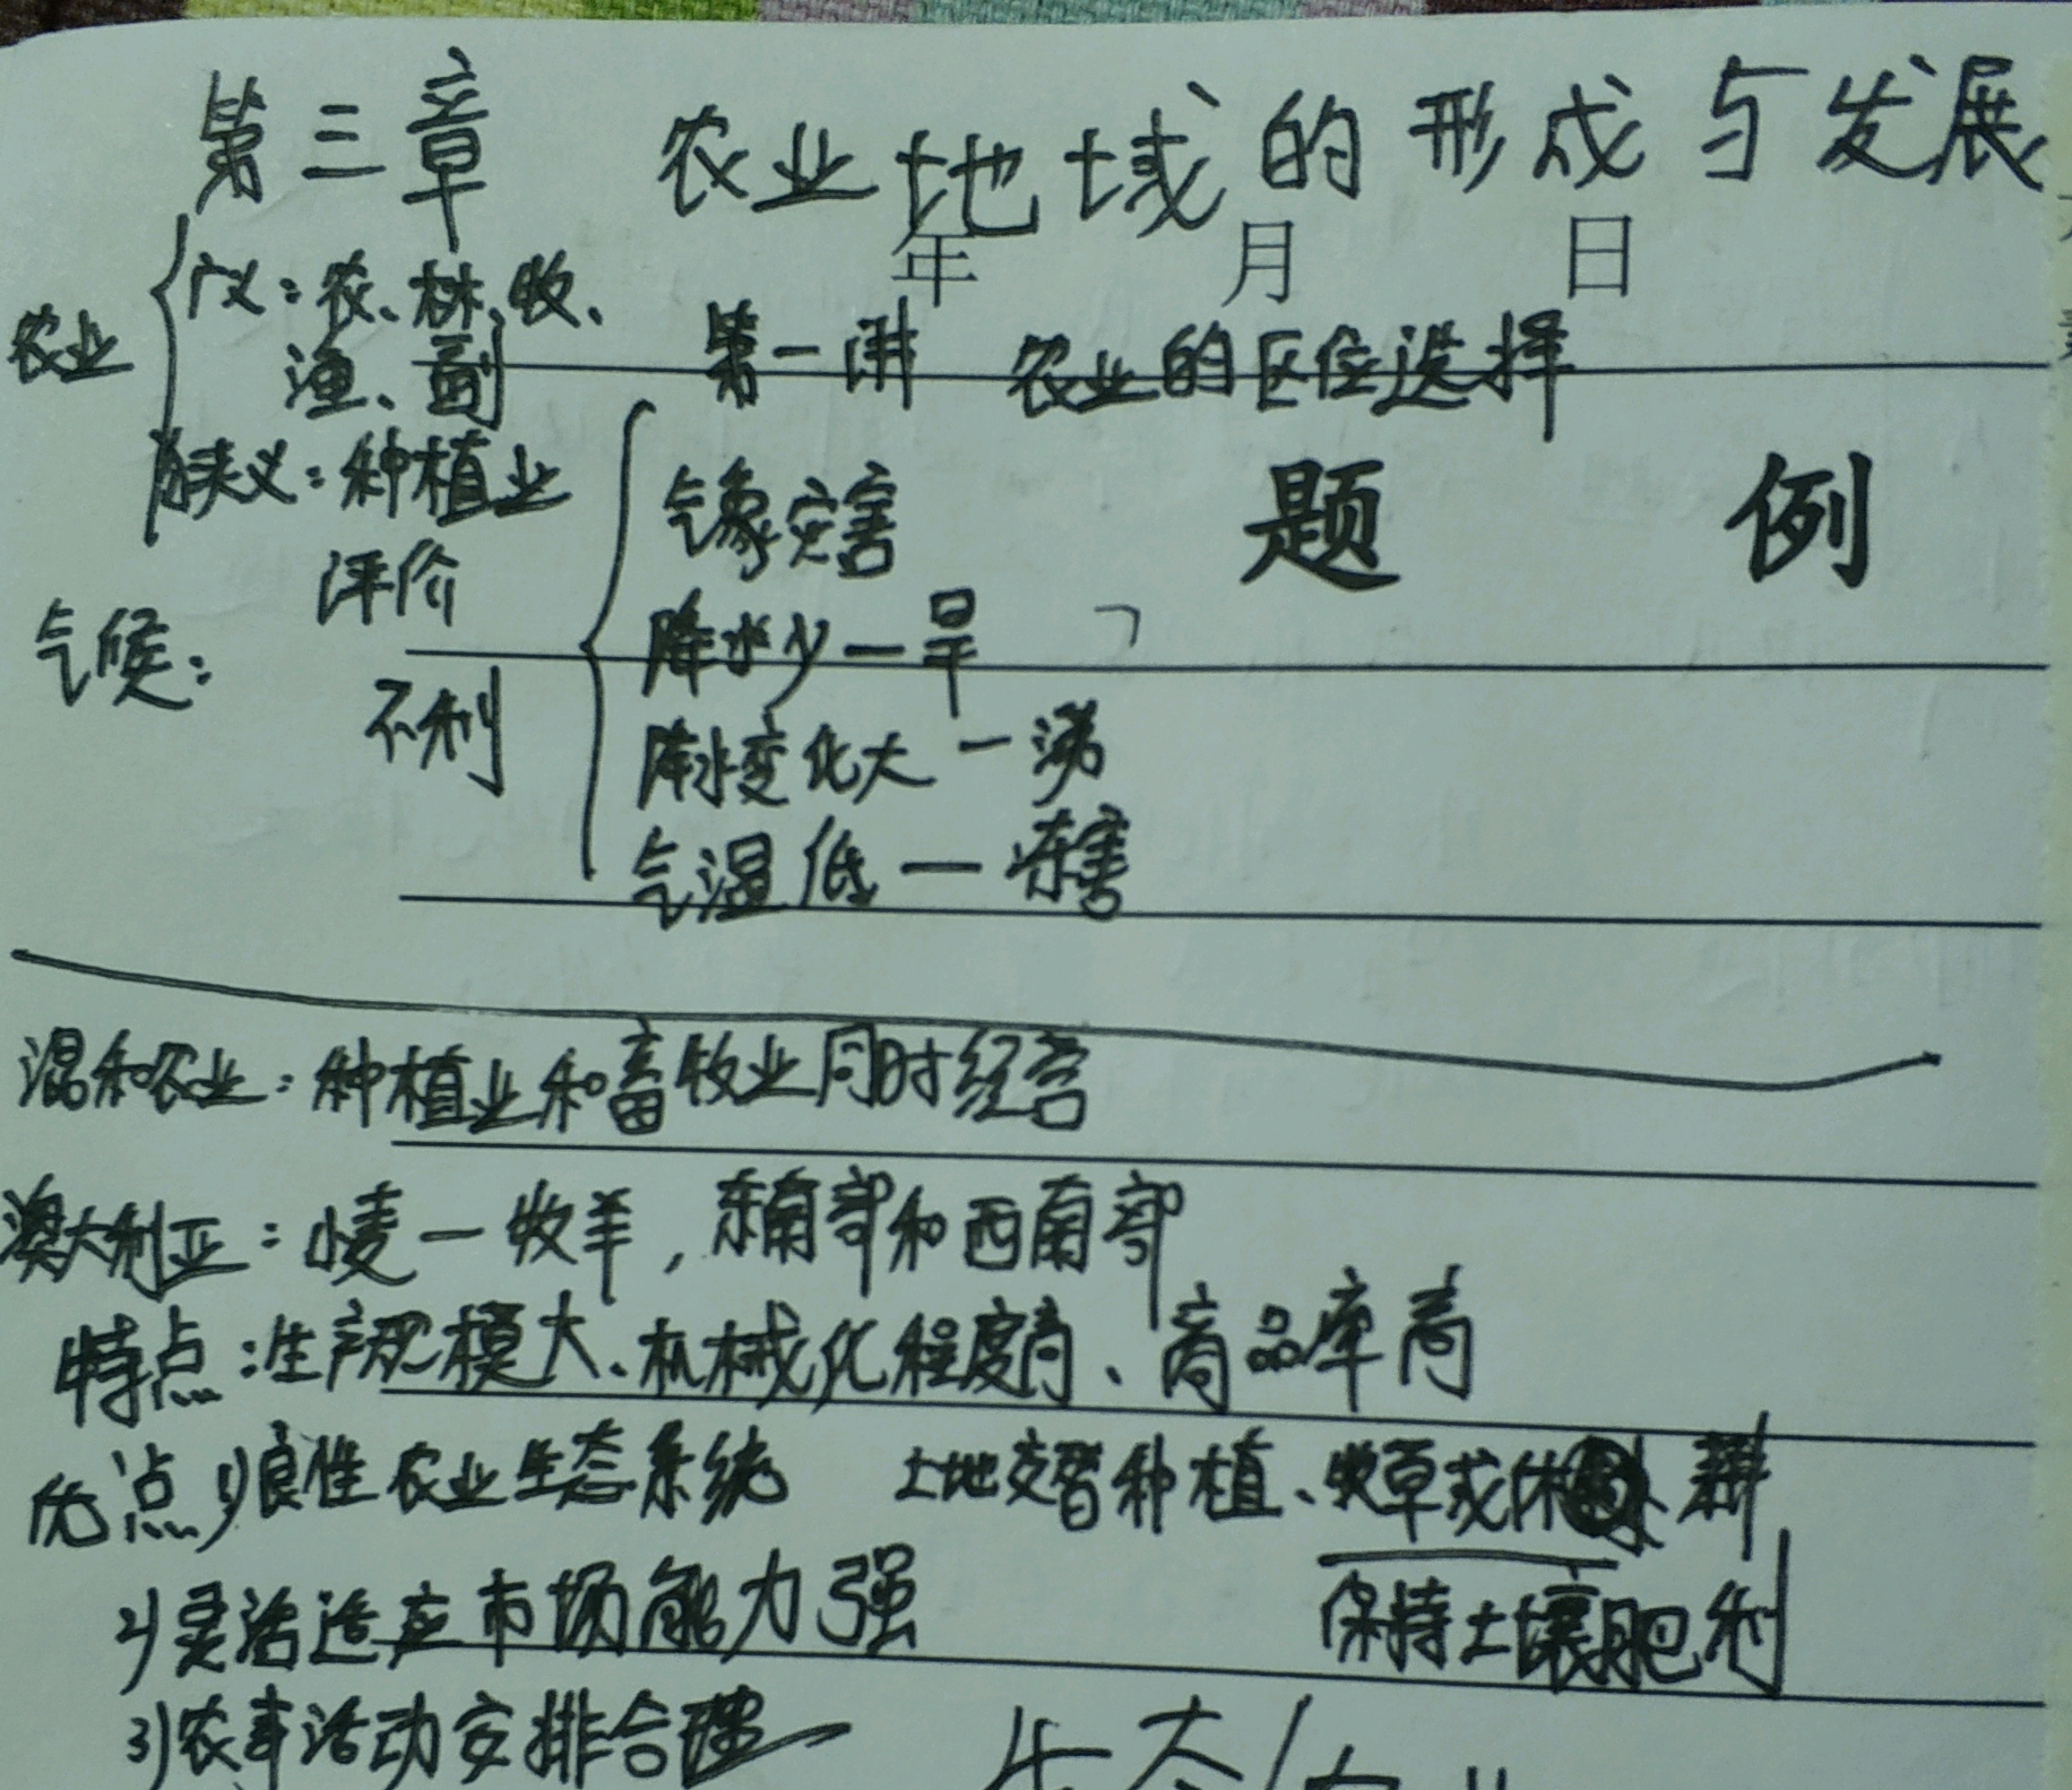 第三章 农业地域的形成与发展
年 月 日
农业
广义：农、林、牧、
渔、副
狭义：种植业
第一讲 农业的区位选择
题 例
气候：
评价
不利
气象灾害
降水少一旱
降水变化大一涝
气温低一冻害
混和农业：种植业和畜牧业同时经营
澳大利亚：小麦一牧羊，东南部和西南部
特点：生产规模大、机械化程度高、商品率高
优点 1)良性农业生态系统 土地交替种植、牧草或休耕
2)灵活适应市场能力强 保持土壤肥利
3)农事活动安排合理